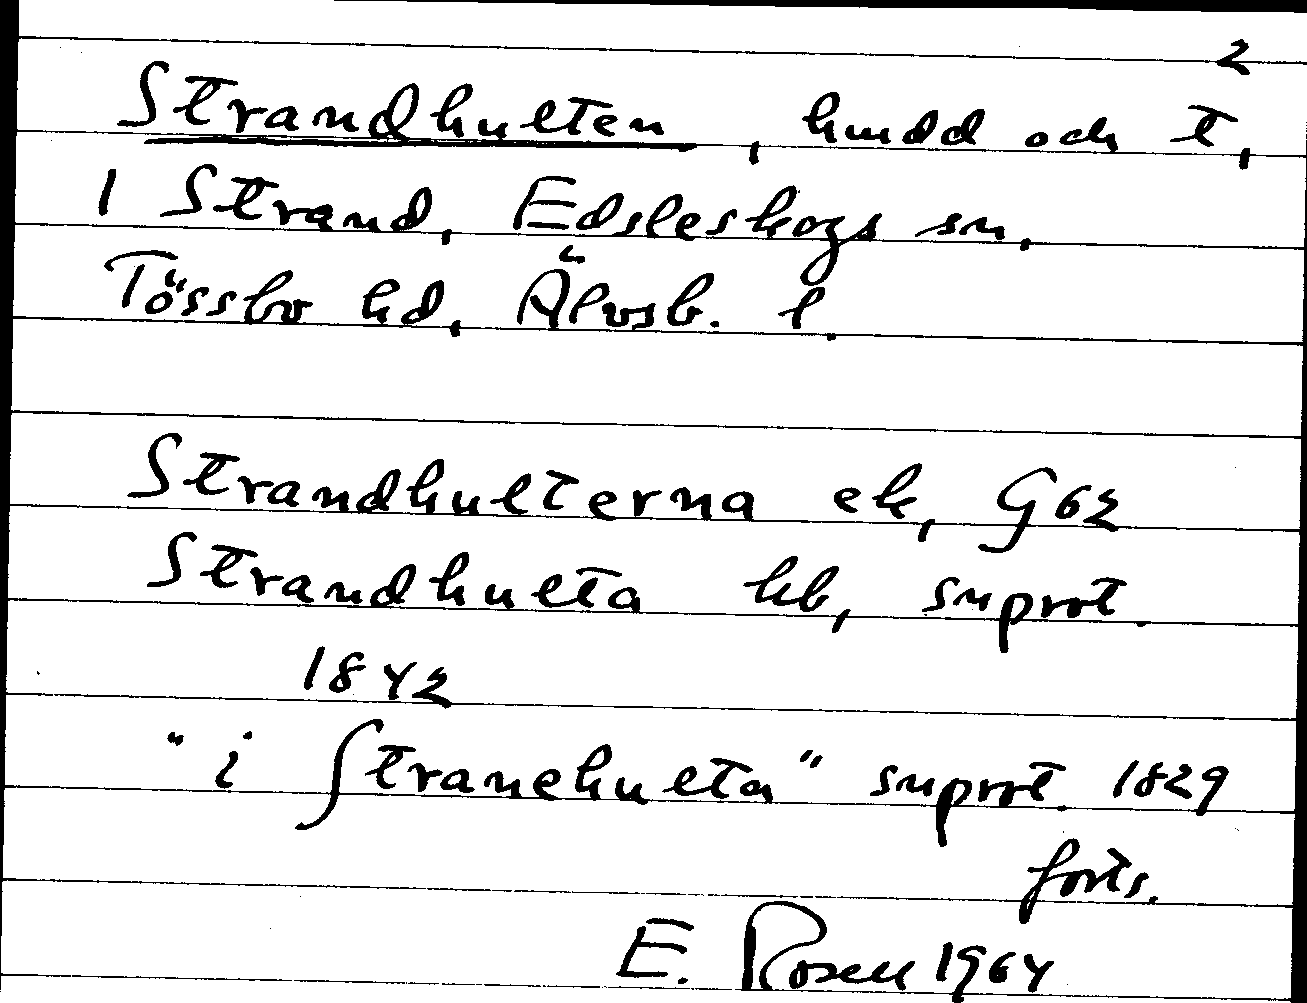 2
Strandhulten, hmdd och t,
1 Strand, Edsleskogs sn,
Tössbo hd, Älvsb. l.
Strandhulterna ek, G62
Strandhulta hb, snprot.
1842
"i Stranehulta" snprot. 1829
forts.
E. Rosell 1964